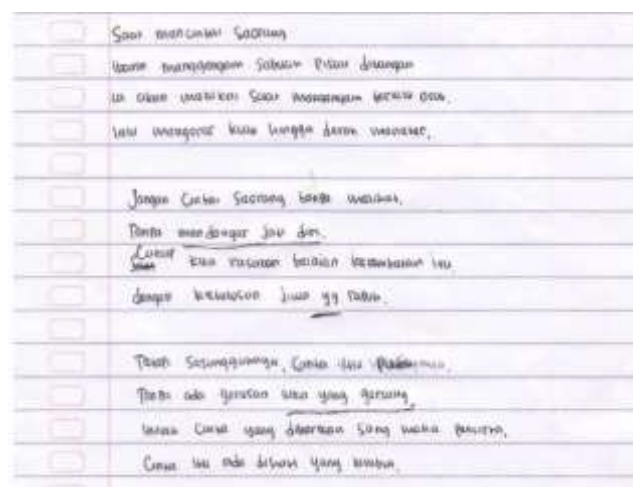 Saat mencintai Seorang
ibarat menggenggam Sebuah Pisau ditangan
ia akan melukai Saat menggenggam terlalu erat.
lalu mengores kuat hingga darah menetes.
Jangan Cintai Seorang tanpa melihat.
Tanpa mendengar jati diri.
Cukup kau rasakan belaian kelembutan itu
dengan ketulusan jiwa yg rapuh.
Sesungguhnya, Cinta itu
Tanpa ada goresan luka yang garang.
Cinta yang diberikan Sang maha pencipta.
Cinta itu ada dihati yang lembut.